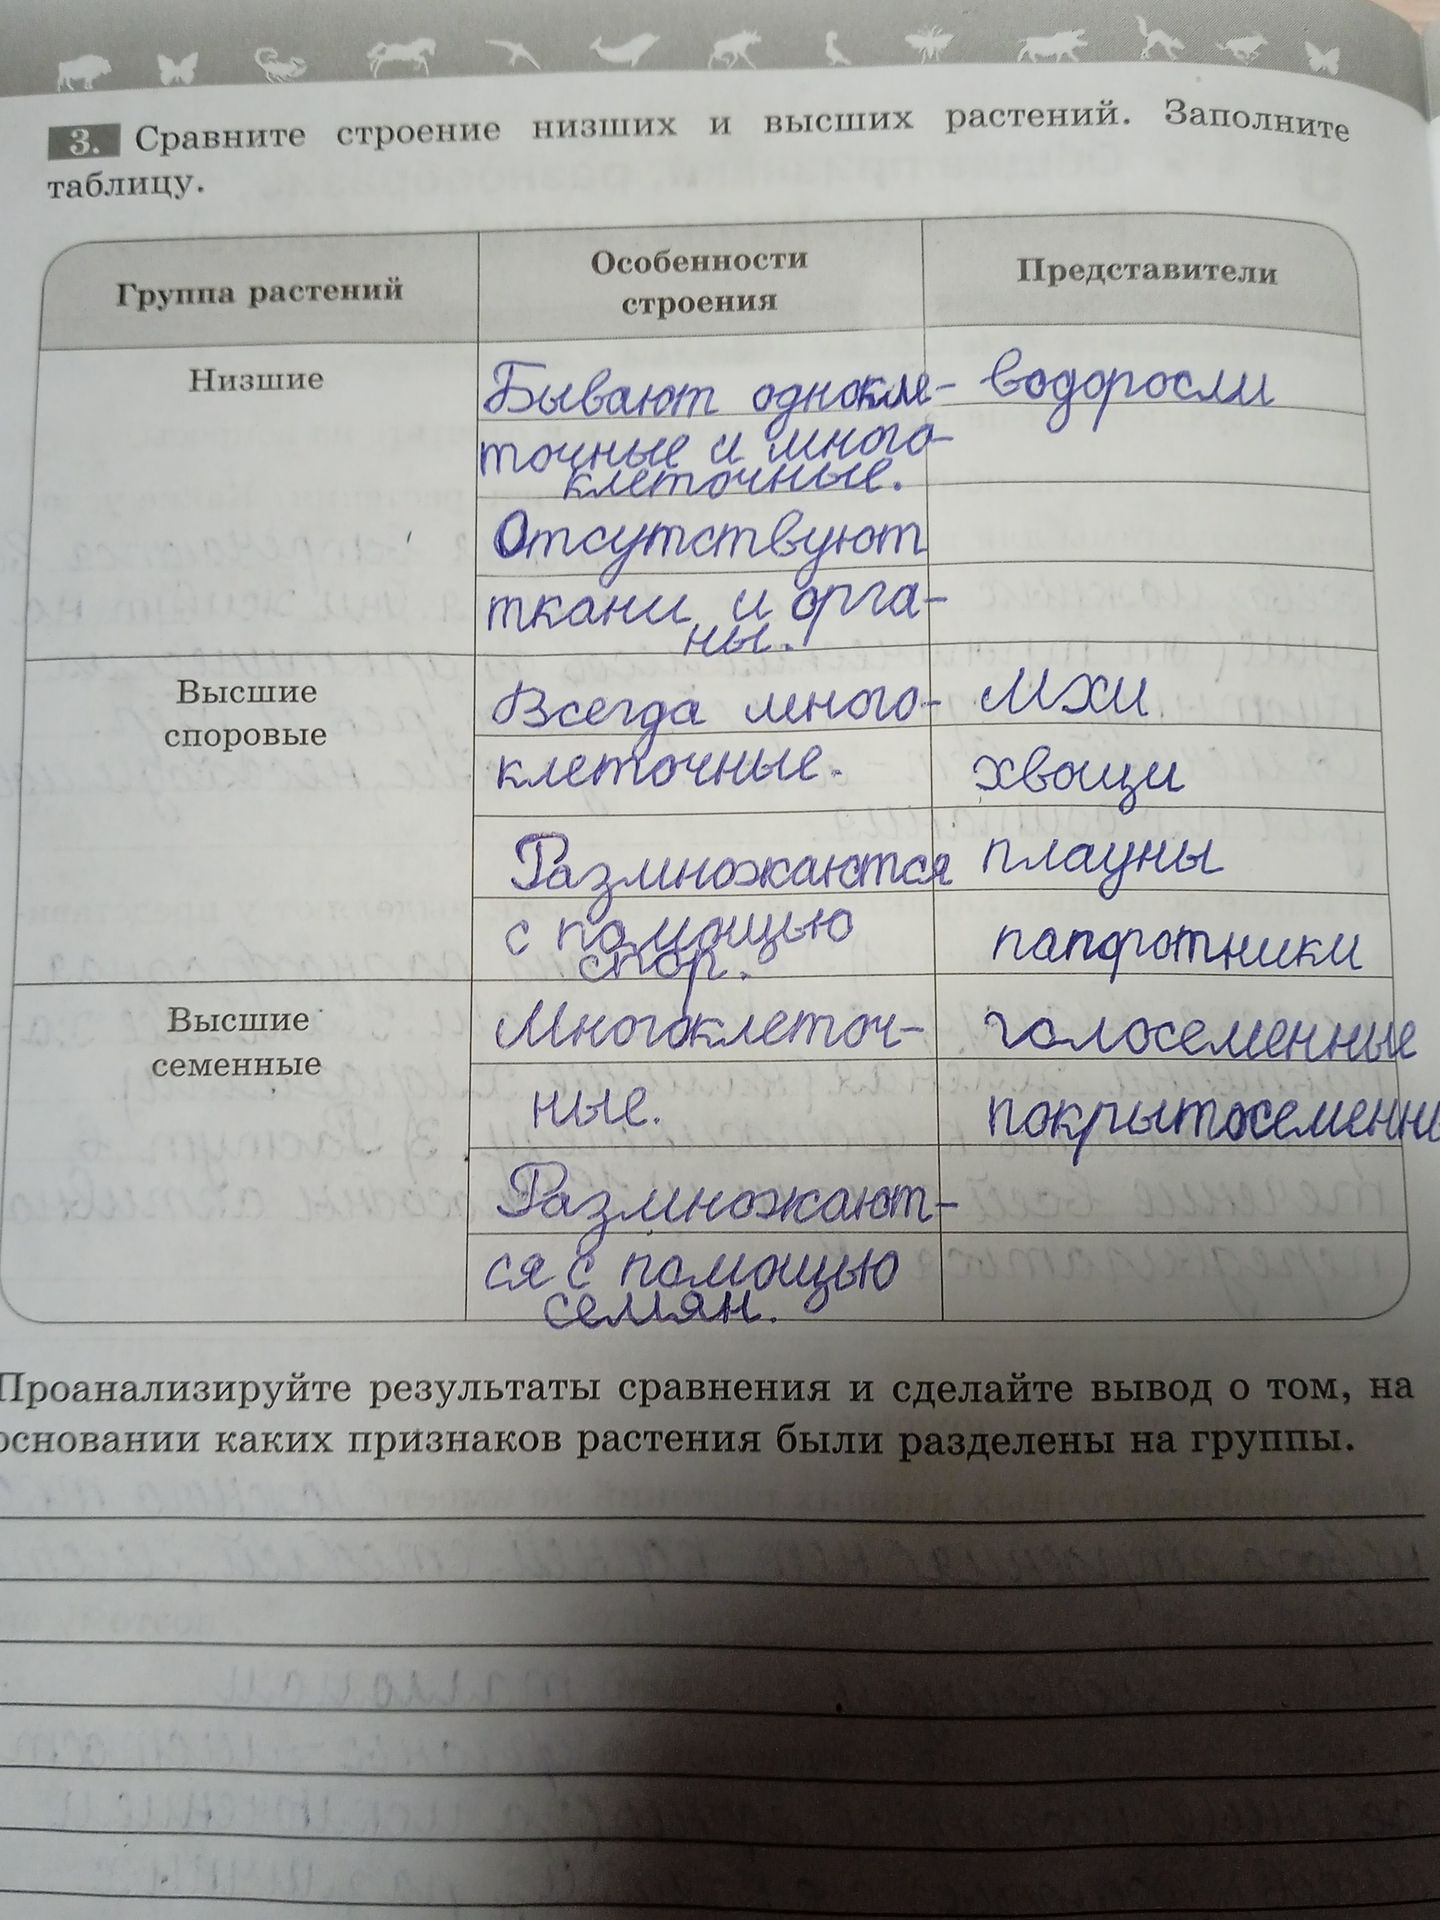 3. Сравните строение низших и высших растений. Заполните
таблицу.
Группа растений
Особенности
строения
Представители
Низшие
Бывают однокле-
точные и много-
клеточные.
Отсутствуют
ткани и орга-
ны.
водоросли
Высшие
споровые
Всегда много-
клеточные.
Размножаются
с помощью
спор.
мхи
хвощи
плауны
папоротники
Высшие
семенные
Многоклеточ-
ные.
Размножают-
ся с помощью
семян.
голосеменные
покрытосеменны
Проанализируйте результаты сравнения и сделайте вывод о том, на
основании каких признаков растения были разделены на группы.